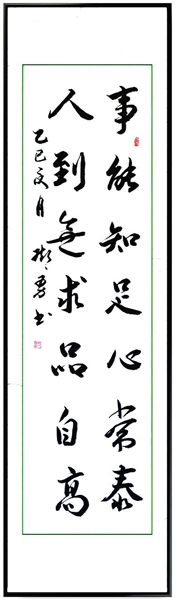 事能知足心常泰
人到無求品自高
乙巳夏月 书